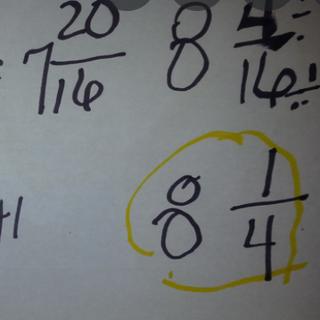 7 20/16 8 4/16
8 1/4